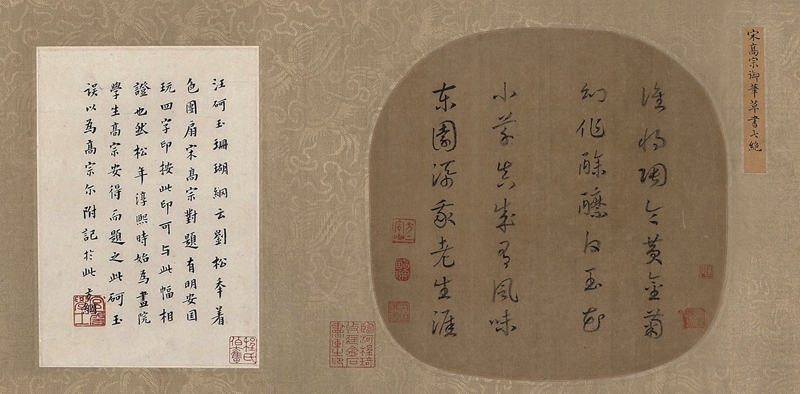 宋高宗御筆草書七絕
誰將陶令黃金菊
幻作酴醿白玉花
小草真成有風味
東園添我老生涯
汪砢玉珊瑚網云劉松年着
色團扇宋高宗對題有明安國
玩四字印按此印可与此幅相
證也然松年淳熙時始為畫院
學生高宗安得而題之此砢玉
誤以為高宗尔附記於此
程氏
伯奮